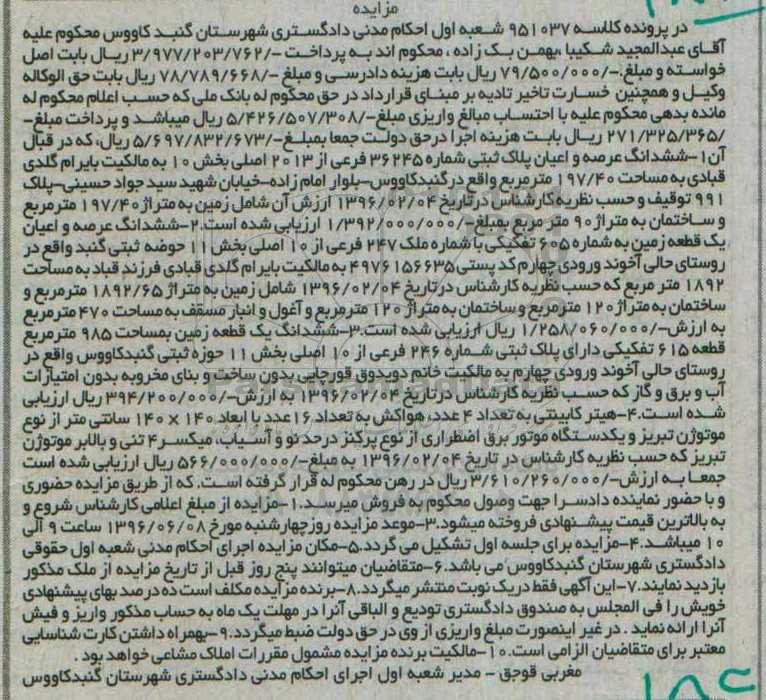 مزایده
در پرونده کلاسه ۹۵۱۰۳۷ شعبه اول احکام مدنی دادگستری شهرستان گنبد کاووس محکوم علیه
آقای عبدالمجید شکیبا ،بهمن بک زاده ، محکوم اند به پرداخت -/۳/۹۷۷/۲۰۳/۷۶۲ ریال بابت اصل
خواسته و مبلغ -/۷۹/۵۰۰/۰۰۰ ریال بابت هزینه دادرسی و مبلغ -/۷۸/۷۸۹/۶۶۸ ریال بابت حق الوکاله
وکیل و همچنین خسارت تاخیر تادیه بر مبنای قرارداد در حق محکوم له بانک ملی که حسب اعلام محکوم له
مانده بدهی محکوم علیه با احتساب مبالغ واریزی مبلغ -/۵/۴۲۶/۵۰۷/۳۰۸ ریال میباشد و پرداخت مبلغ-
/۲۷۱/۳۲۵/۳۶۵ ریال بابت هزینه اجرا درحق دولت جمعا بمبلغ-/۵/۶۹۷/۸۳۲/۶۷۳ ریال، که در قبال
آن۱-ششدانگ عرصه و اعیان پلاک ثبتی شماره ۳۶۲۴۵ فرعی از ۲۰۱۳ اصلی بخش ۱۰ به مالکیت بایرام گلدی
قبادی به مساحت ۱۹۷/۴۰ مترمربع واقع در گنبدکاووس-بلوار امام زاده-خیابان شهید سید جواد حسینی-پلاک
۹۹۱ توقیف و حسب نظریه کارشناس درتاریخ ۱۳۹۶/۰۲/۰۴ ارزش آن شامل زمین به متراژ ۱۹۷/۴۰ مترمربع
و ساختمان به متراژ ۹۰ متر مربع بمبلغ-/۱/۳۹۲/۰۰۰/۰۰۰ ارزیابی شده است.۲-ششدانگ عرصه و اعیان
یک قطعه زمین به شماره ۶۰۵ تفکیکی با شماره ملک ۲۴۷ فرعی از ۱۰ اصلی بخش ۱۱ حوضه ثبتی گنبد واقع در
روستای حالی آخوند ورودی چهارم کد پستی ۴۹۷۶۱۵۶۶۳۵ به مالکیت بایرام گلدی قبادی فرزند قباد به مساحت
۱۸۹۲ متر مربع که حسب نظریه کارشناس درتاریخ ۱۳۹۶/۰۲/۰۴ شامل زمین به متراژ ۱۸۹۲/۶۵ مترمربع و
ساختمان به متراژ ۱۲۰ مترمربع و ساختمان به متراژ ۱۲۰ مترمربع و آغول و انبار مسقف به مساحت ۴۷۰ مترمربع
به ارزش-/۱/۲۵۸/۰۶۰/۰۰۰ ریال ارزیابی شده است.۳-ششدانگ یک قطعه زمین بمساحت ۹۸۵ مترمربع
قطعه ۶۱۵ تفکیکی دارای پلاک ثبتی شماره ۲۴۶ فرعی از ۱۰ اصلی بخش ۱۱ حوزه ثبتی گنبدکاووس واقع در
روستای حالی آخوند ورودی چهارم به مالکیت خانم دویدوق قورچایی بدون ساخت و بنای مخروبه بدون امتیازات
آب و برق و گاز که حسب نظریه کارشناس درتاریخ ۱۳۹۶/۰۲/۰۴ به ارزش-/۳۹۴/۲۰۰/۰۰۰ ریال ارزیابی
شده است.۴-هیتر کابینتی به تعداد ۴ عدد، هواکش به تعداد ۱۶ عدد با ابعاد ۱۴۰ × ۱۴۰ سانتی متر از نوع
موتوژن تبریز و یکدستگاه موتور برق اضطراری از نوع پرکنز درحد نو و آسیاب، میکسر ۴ تنی و بالابر موتوژن
تبریز که حسب نظریه کارشناس در تاریخ ۱۳۹۶/۰۲/۰۴ به مبلغ-/۵۶۶/۰۰۰/۰۰۰ ریال ارزیابی شده است
جمعا به ارزش-/۳/۶۱۰/۲۶۰/۰۰۰ ریال در رهن محکوم له قرار گرفته است. که از طریق مزایده حضوری
و با حضور نماینده دادسرا جهت وصول محکوم به فروش میرسد.۱-مزایده از مبلغ اعلامی کارشناس شروع و
به بالاترین قیمت پیشنهادی فروخته میشود.۳-موعد مزایده روز چهارشنبه مورخ ۱۳۹۶/۰۶/۰۸ ساعت ۹ الی
۱۰ میباشد.۴-مزایده برای جلسه اول تشکیل می گردد.۵-مکان مزایده اجرای احکام مدنی شعبه اول حقوقی
دادگستری شهرستان گنبدکاووس می باشد.۶-متقاضیان میتوانند پنج روز قبل از تاریخ مزایده از ملک مذکور
بازدید نمایند.۷-این آگهی فقط در یک نوبت منتشر میگردد.۸-برنده مزایده مکلف است ده درصد بهای پیشنهادی
خویش را فی المجلس به صندوق دادگستری تودیع و الباقی آنرا در مهلت یک ماه به حساب مذکور واریز و فیش
آنرا ارائه نماید . در غیر اینصورت مبلغ واریزی از وی در حق دولت ضبط میگردد.۹-بهمراه داشتن کارت شناسایی
معتبر برای متقاضیان الزامی است.۱۰-مالکیت برنده مزایده مشمول مقررات املاک مشاعی خواهد بود .
مغربی قوجق - مدیر شعبه اول اجرای احکام مدنی دادگستری شهرستان گنبدکاووس